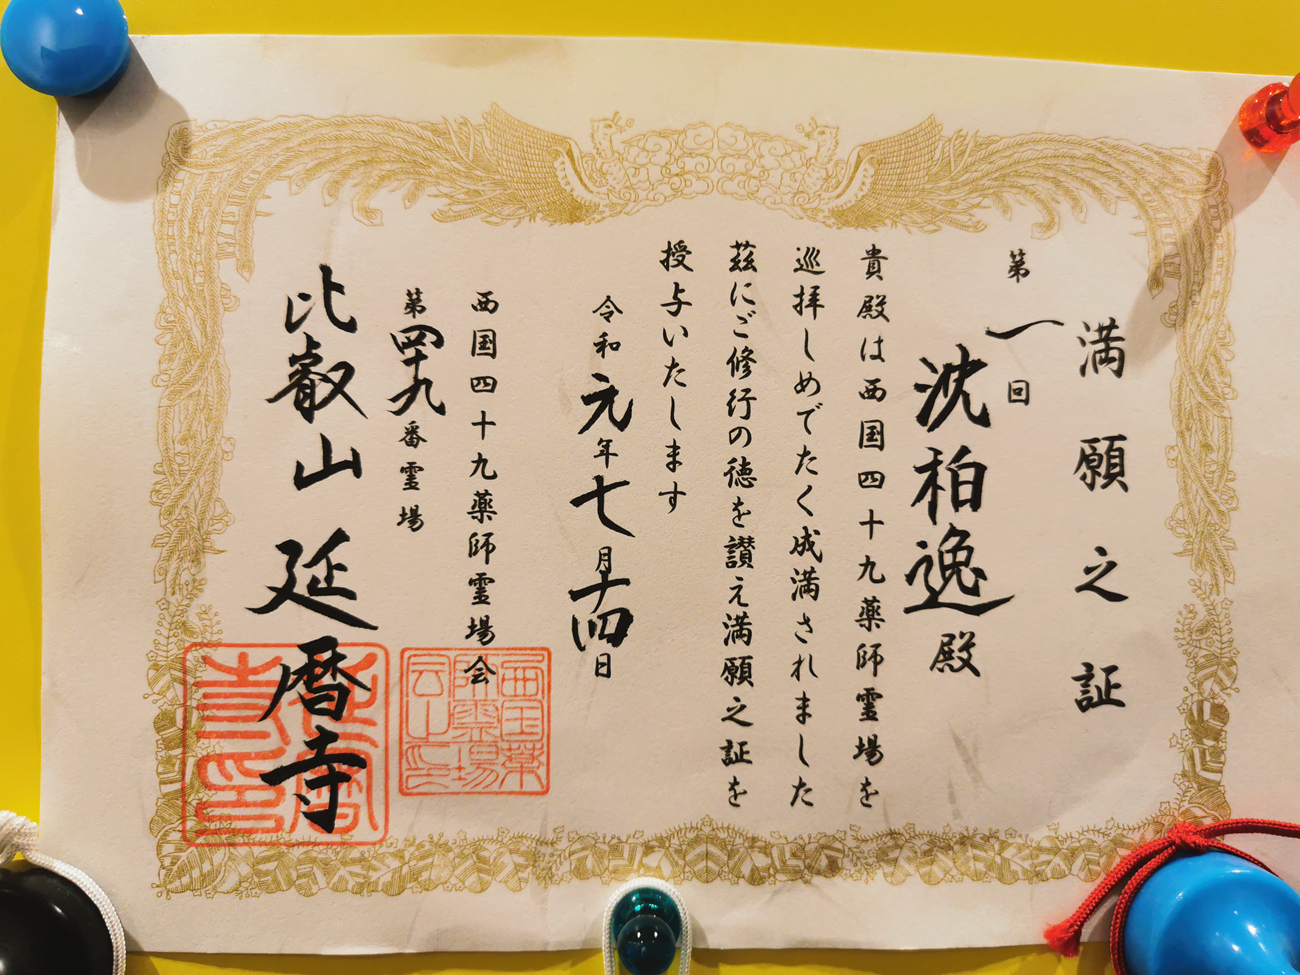 満願之証
第一回
沈柏逸殿
貴殿は西国四十九薬師霊場を
巡拝しめでたく成満されました
茲にご修行の徳を讃え満願之証を
授与いたします
令和元年七月十四日
西国四十九薬師霊場会
第四十九番霊場
比叡山延暦寺